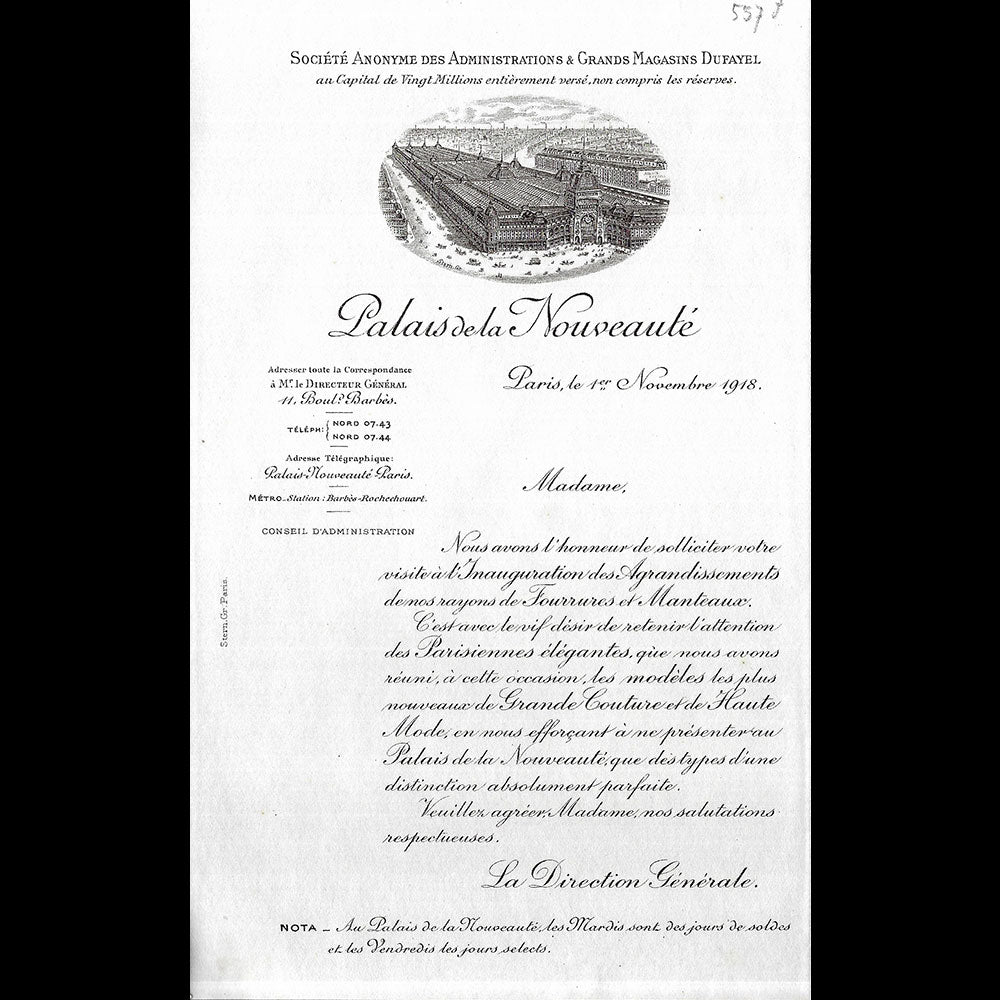 557
SOCIÉTÉ ANONYME DES ADMINISTRATIONS & GRANDS MAGASINS DUFAYEL
au Capital de Vingt Millions entièrement versé, non compris les réserves.
Stern. Gr.
Palais de la Nouveauté
Adresser toute la Correspondance
à Mr. le DIRECTEUR GÉNÉRAL
11, Boul.d Barbès.
TÉLÉPH: { NORD 07.43
NORD 07.44
Adresse Télégraphique:
Palais-Nouveauté-Paris.
MÉTRO_Station : Barbès-Rochechouart.
CONSEIL D'ADMINISTRATION
Stern. Gr. Paris.
Paris, le 1er Novembre 1918.
Madame,
Nous avons l'honneur de solliciter votre
visite à l'Inauguration des Agrandissements
de nos rayons de Fourrures et Manteaux.
C'est avec le vif désir de retenir l'attention
des Parisiennes élégantes, que nous avons
réuni, à cette occasion, les modèles les plus
nouveaux de Grande Couture et de Haute
Mode, en nous efforçant à ne présenter au
Palais de la Nouveauté, que des types d'une
distinction absolument parfaite.
Veuillez agréer, Madame, nos salutations
respectueuses.
La Direction Générale.
NOTA _ Au Palais de la Nouveauté, les Mardis sont des jours de soldes
et les Vendredis les jours selects.